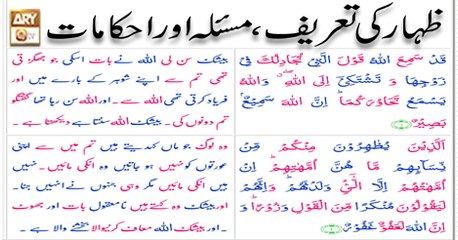 ARY
Qtv
ظہار کی تعریف، مسئلہ اور احکامات
قَدْ سَمِعَ اللّٰهُ قَوْلَ الَّتِیْ تُجَادِلُكَ فِیْ
زَوْجِهَا وَ تَشْتَكِیْۤ اِلَى اللّٰهِ ۖۗ وَ اللّٰهُ
یَسْمَعُ تَحَاوُرَكُمَا ؕ اِنَّ اللّٰهَ سَمِیْعٌۢ
بَصِیْرٌ
بیشک سن لی اللہ نے بات اسکی جو جھگڑتی
تھی تم سے اپنے شوہر کے بارے میں اور
فریاد کرتی تھی اللہ سے ۔ اور اللہ سن رہا تھا گفتگو
تم دونوں کی ۔ بیشک اللہ سنتا ہے دیکھتا ہے ۔
اَلَّذِیْنَ یُظٰهِرُوْنَ مِنْكُمْ مِّنْ
نِّسَآىِٕهِمْ مَّا هُنَّ اُمَّهٰتِهِمْ ؕ اِنْ
اُمَّهٰتُهُمْ اِلَّا الّٰٓـِٔیْ وَلَدْنَهُمْ ؕ وَ اِنَّهُمْ
لَیَقُوْلُوْنَ مُنْكَرًا مِّنَ الْقَوْلِ وَ زُوْرًا ؕ وَ
اِنَّ اللّٰهَ لَعَفُوٌّ غَفُوْرٌ
وہ لوگ جو ماں کہدیتے ہیں تم میں سے اپنی
عورتوں کو نہیں ہو جاتی وہ انکی مائیں ۔ نہیں
ہیں انکی مائیں مگر وہی جنہوں نے جنا انکو ۔
اور بیشک وہ کہتے ہیں نامعقول بات اور جھوٹ
۔ اور بیشک اللہ معاف کرنیوالا بخشنے والا ہے ۔